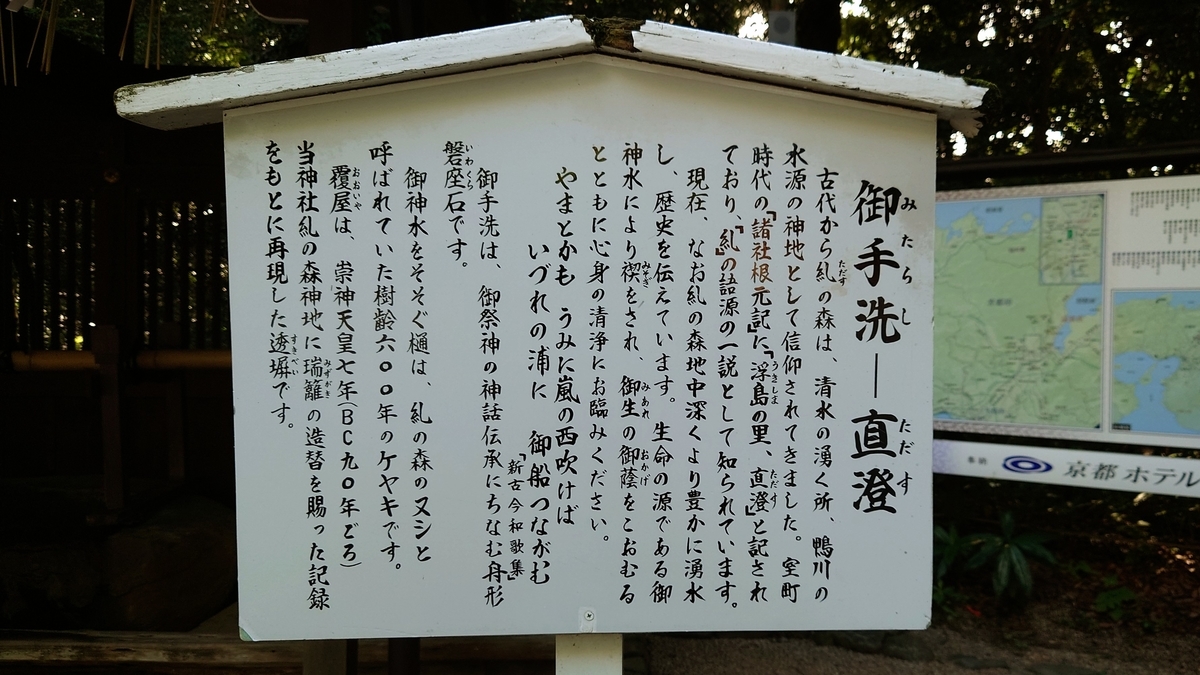 御手洗―直澄
みたらし
ただす
古代から糺の森は、清水の湧く所、鴨川の
ただす
水源の神地として信仰されてきました。室町
時代の『諸社根元記』に、「浮島の里、直澄」と記され
うきしま
ただす
ており、『糺』の語源の一説として知られています。
現在、なお糺の森地中深くより豊かに湧水
し、歴史を伝えています。生命の源である御
神水により禊をされ、御生の御蔭をこおむる
みそぎ
みあれ
おかげ
とともに心身の清浄にお臨みください。
やまとかも うみに嵐の西吹けば
いづれの浦に 御船つながむ
「新古今和歌集」
御手洗は、御祭神の神話伝承にちなむ舟形
磐座石です。
いわくら
御神水をそそぐ樋は、糺の森のヌシと
呼ばれていた樹齢六〇〇年のケヤキです。
覆屋は、崇神天皇七年(BC九〇年ごろ)
おおいや
当神社糺の森神地に瑞籬の造替を賜った記録
みずがき
をもとに再現した透塀です。
すきべい
京都ホテル